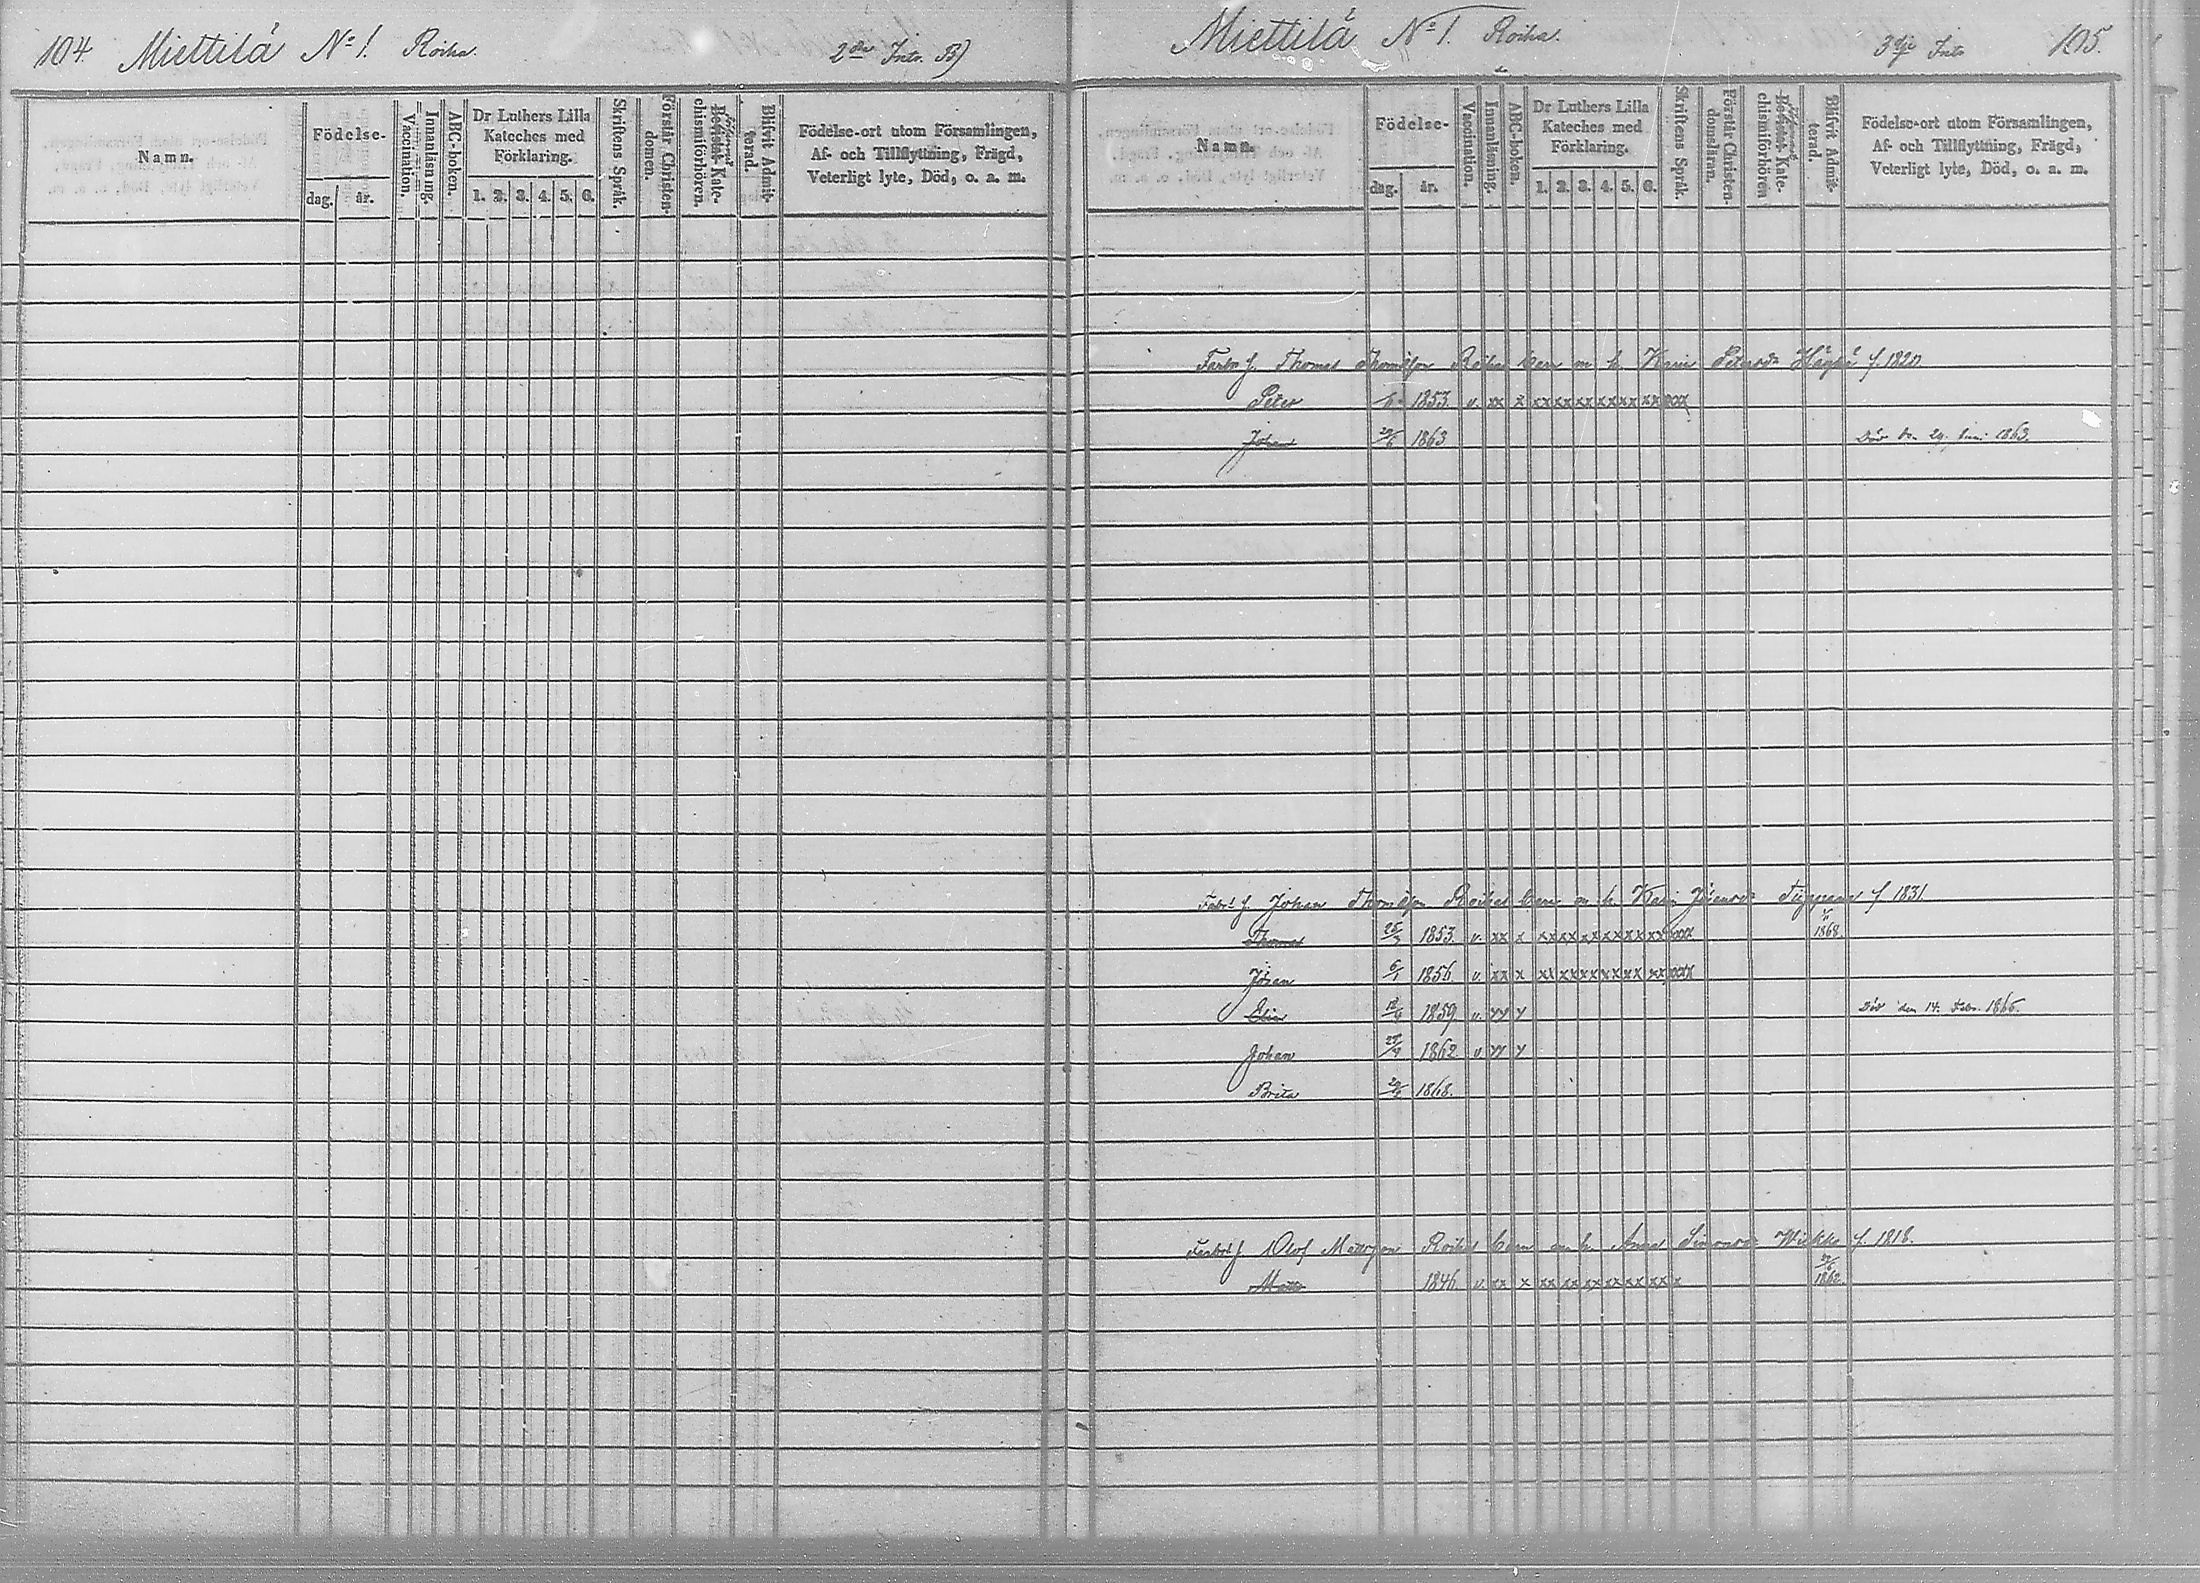 104. Miettilä No 1. Roiha. 2dra Intr. B)
Namn.
Födelse-
dag. år.
Vaccination.
Innanläsning.
ABC-boken.
Dr Luthers Lilla Kateches med Förklaring.
1. 2. 3. 4. 5. 6.
Skriftens Språk.
Förstår Christendomen.
Bevistat Katechismiförhören.
Blifvit Admitterad.
Födelse-ort utom Församlingen,
Af- och Tillflyttning, Frägd,
Veterligt lyte, Död, o. a. m.
Miettilä No 1. Roiha. 3dje Intr. 105.
Namn.
Födelse-
dag. år.
Vaccination.
Innanläsning.
ABC-boken.
Dr Luthers Lilla Kateches med Förklaring.
1. 2. 3. 4. 5. 6.
Skriftens Språk.
Förstår Christendomsläran.
Bevistat Katechismiförhören
Blifvit Admitterad.
Födelse-ort utom Församlingen,
Af- och Tillflyttning, Frägd,
Veterligt lyte, Död, o. a. m.
Thomas Thomasson Roihas barn m. h. Karin Petersdr f. 1820.
Peter 1853. v. xx x xx xx xx xx xx xx xxx
Johan 29/6 1863 Död den 29. Juni 1863.
Johan Thomasson Roihas barn m. h. Karin Göransdr f. 1831.
Thomas 25/3 1853. v. xx x xx xx xx xx xx xx xxx 1868.
Johan 6/1 1856 v. xx x xx xx xx xx xx xx xxx
Elin 12/4 1859 v. yy y Död den 14. Febr. 1866.
Johan 1862 v yy y
Brita 1868.
Olof Mattsson Roihas barn m. h. Anna Simonsdr f. 1818.
Matts 1846 v. xx x xx xx xx xx xx xx x 1862